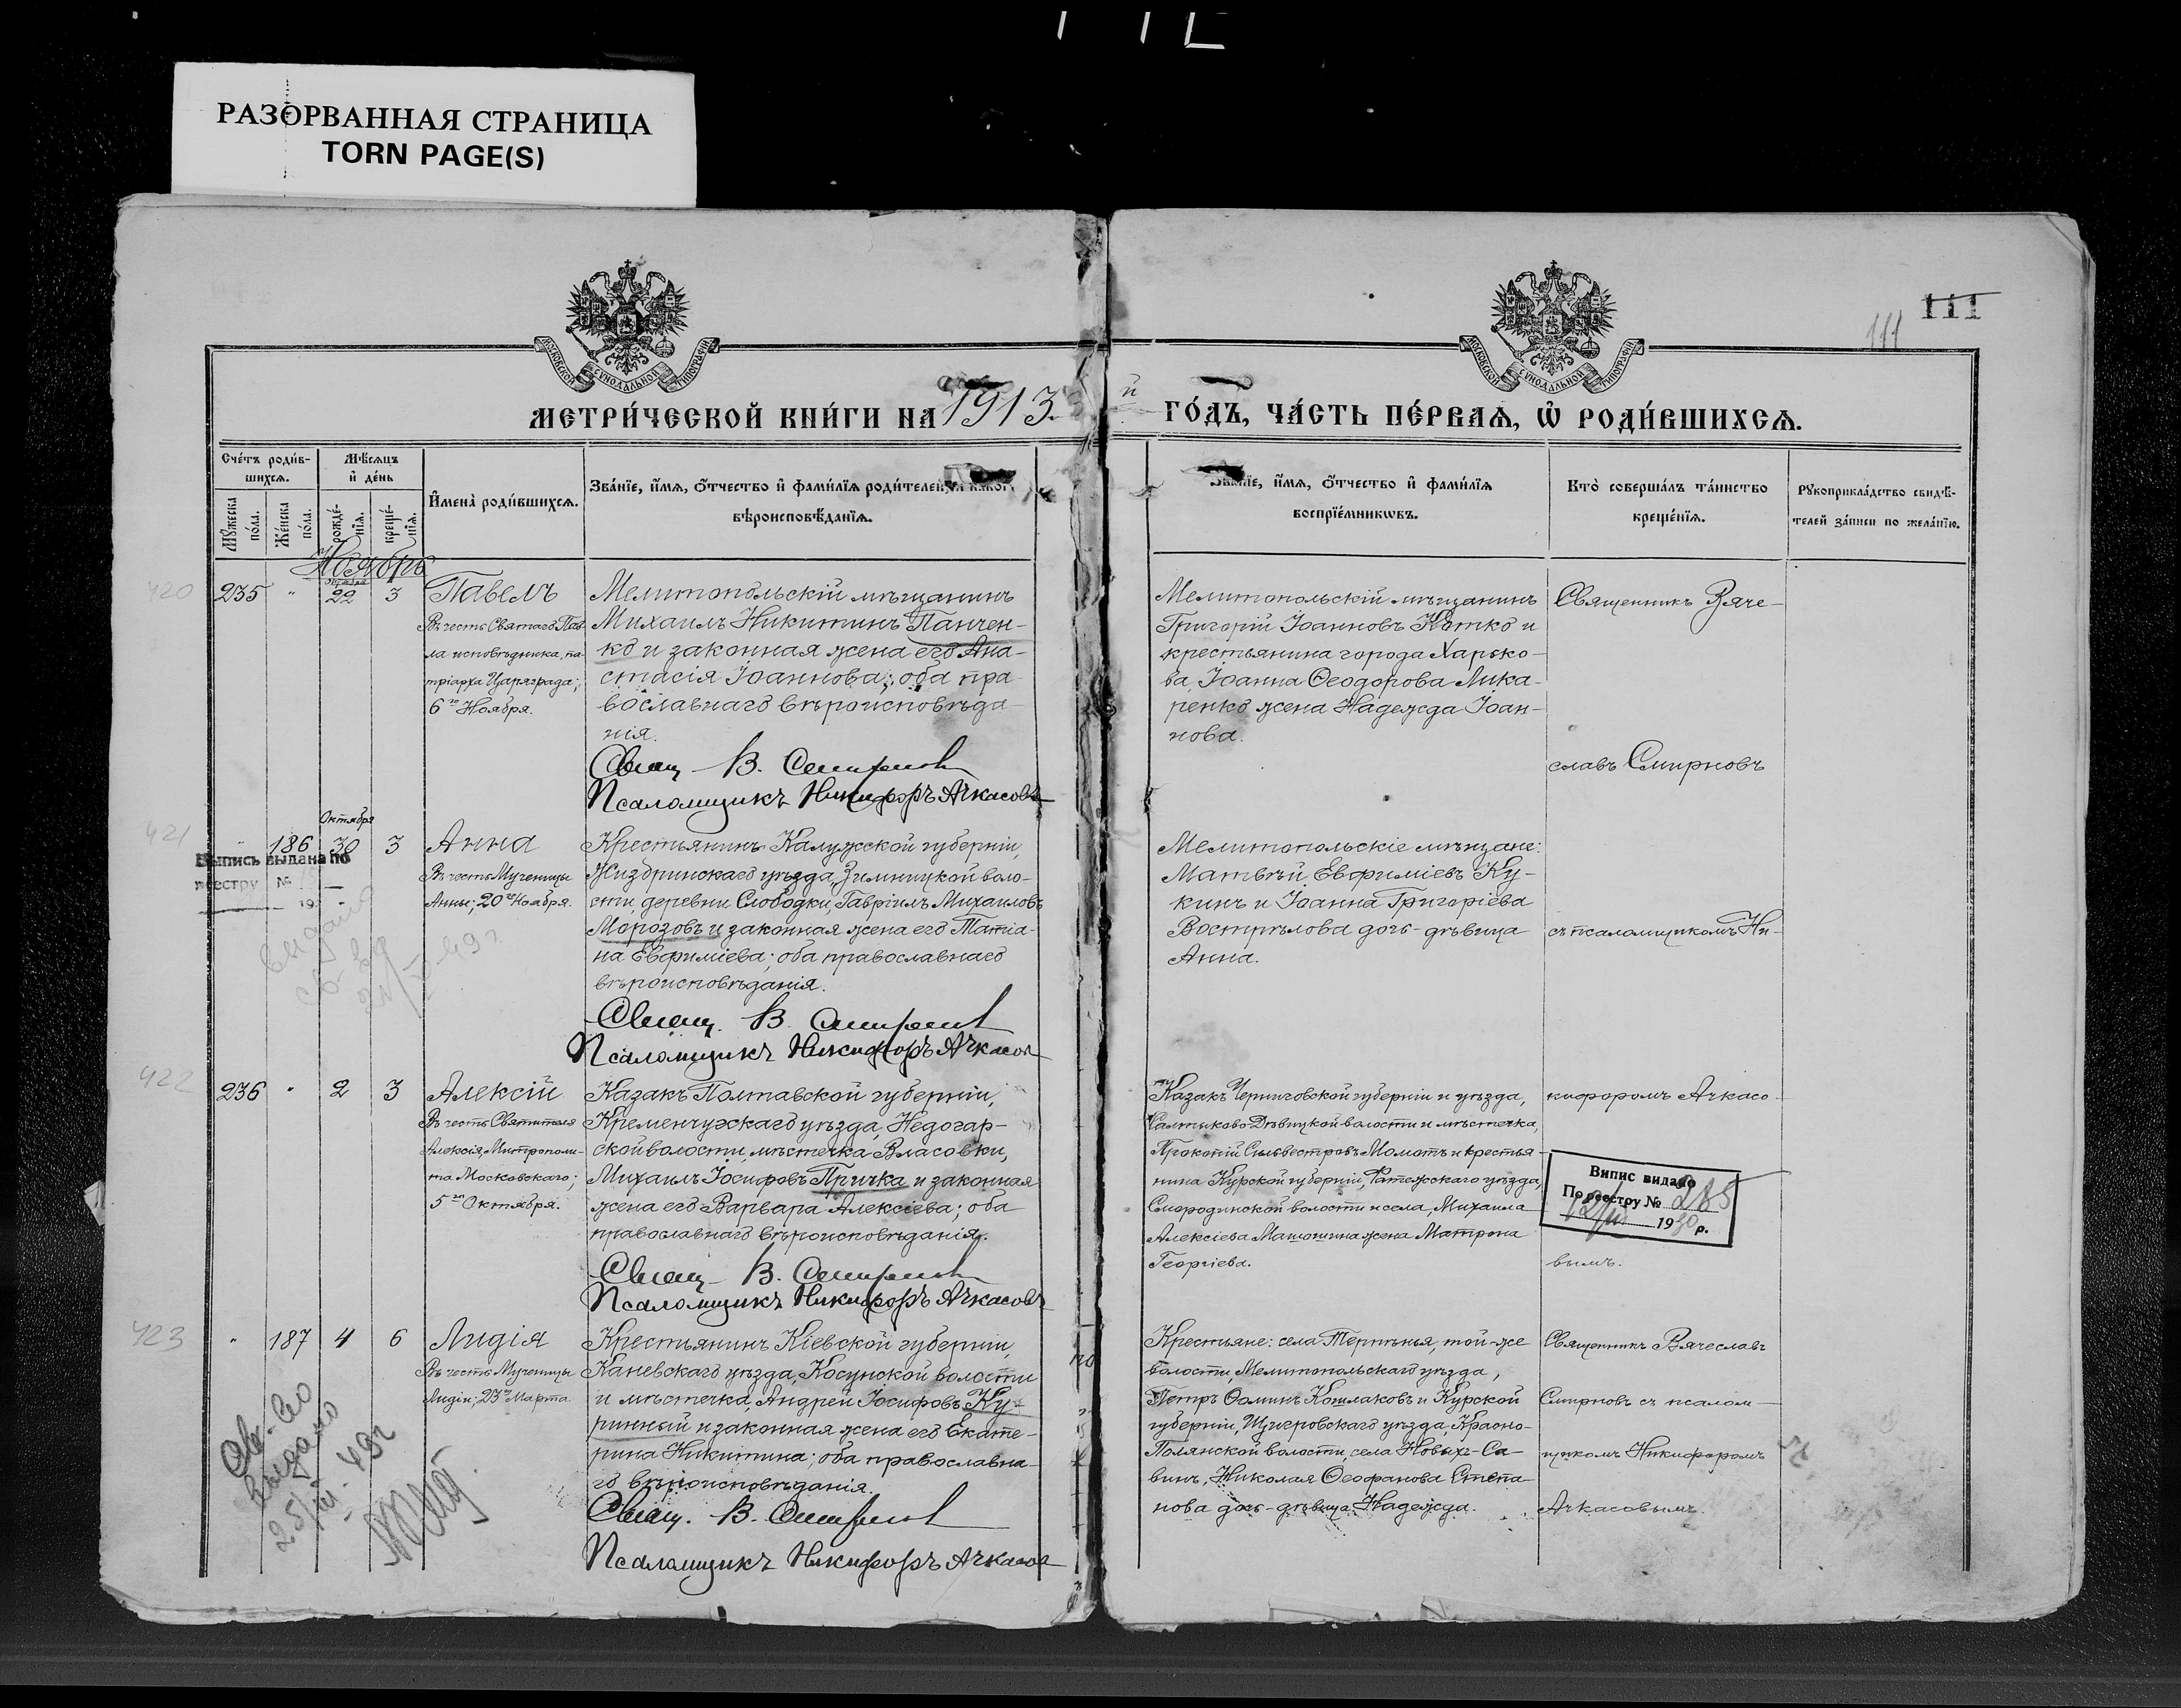 РАЗОРВАННАЯ СТРАНИЦА
TORN PAGE(S)
111
111
МОСКОВСКОЙ СѴНОДАЛЬНОЙ ТИПОГРАФІИ
МОСКОВСКОЙ СѴНОДАЛЬНОЙ ТИПОГРАФІИ
МЕТРИ́ЧЕСКОЙ КНИ́ГИ НА 1913.
й ГО́ДЪ, ЧА́СТЬ ПЕ́РВАѦ, Ѡ҆ РОДИ́ВШИХСѦ.
Сче́тъ роди́в-
шихсѧ.
Мꙋжеска по́ла.
Же́нска по́ла.
Мѣ́сѧцъ
и҆ де́нь
рожде́-
нїѧ.
креще́-
нїѧ.
И҆мена̀ роди́вшихсѧ.
Зва́нїе, и҆́мѧ, ѻ҆́тчество и҆ фами́лїѧ роди́телей,
вѣроисповѣ́данїѧ.
Зва́нїе, и҆́мѧ, ѻ҆́тчество и҆ фами́лїѧ
воспрїе́мникѡвъ.
Кто̀ соверша́лъ та́инство
креще́нїѧ.
Рꙋкоприкла́дство свидѣ́-
телей за́писи по жела́нїю.
Ноябрь
420
235 " Октября 22 3
Павелъ
Въ честь Святаго Пав-
ла исповѣдника, па-
тріарха Царяграда;
6го Ноября.
Мелитопольскій мѣщанинъ
Михаилъ Никитинъ Панчен-
ко и законная жена его Ана-
стасія Іоаннова; оба пра-
вославнаго вѣроисповѣда-
нія.
Свящ В. Смирновъ
Псаломщикъ Никифоръ Ачкасовъ
Мелитопольскій мѣщанинъ
Григорій Іоанновъ Котко и
крестьянина города Харько-
ва, Іоанна Ѳеодорова Мака-
ренко жена Надежда Іоан-
нова.
Священникъ Вяче-
славъ Смирновъ
421
" 186 Октября 30 3
Выпись выдана по
реестру №
19
выдано
Анна
Въ честь Мученицы
Анны; 20го Ноября.
Крестьянинъ Калужской губерніи,
Жиздринскаго уѣзда, Зимницкой воло-
сти, деревни Слободки, Гавріилъ Михаиловъ
Морозовъ и законная жена его Татіа-
на Евфиміева; оба православнаго
вѣроисповѣданія.
Свящ. В. Смирновъ
Псаломщикъ Никифоръ Ачкасовъ
Мелитопольскіе мѣщане:
Матвѣй Евфиміевъ Ку-
кинъ и Іоанна Григоріева
Вострѣлова дочь-дѣвица
Анна.
съ псаломщикомъ Ни-
422
236 " 2 3
Алексій
Въ честь Святителя
Алексія, Митрополи-
та Московскаго;
5го Октября.
Казакъ Полтавской губерніи,
Кременчужскаго уѣзда, Недогар-
ской волости, мѣстечка Власовки,
Михаилъ Іосифовъ Причка и законная
жена его Варвара Алексіева; оба
православнаго вѣроисповѣданія.
Свящ В. Смирновъ
Псаломщикъ Никифоръ Ачкасовъ
Казакъ Черниговской губерніи и уѣзда,
Салтыково-Дѣвицкой волости и мѣстечка,
Прокопій Сильвестровъ Момотъ и крестья-
нина Курской губерніи, Фатежскаго уѣзда,
Смородинской волости и села, Михаила
Алексіева Машошина жена Матрона
Георгіева.
кифоромъ Ачкасо-
вымъ.
Випис видано
По реестру № 285
1930 р.
423
" 187 4 6
Лидія
Въ честь Мученицы
Лидіи; 23го Марта
Св-во
выдано
25/III-49г
Крестьянинъ Кіевской губерніи,
Каневскаго уѣзда, Косунской волости
и мѣстечка, Андрей Іосифовъ Ку-
ринный и законная жена его Екате-
рина Никитина; оба православна-
го вѣроисповѣданія.
Свящ. В. Смирновъ
Псаломщикъ Никифоръ Ачкасовъ
Крестьяне: села Терпѣнья, той-же
волости, Мелитопольскаго уѣзда,
Петръ Ѳоминъ Кошлаковъ и Курской
губерніи, Щигровскаго уѣзда, Красно-
Полянской волости, села Новыхъ-Са-
винъ, Николая Ѳеофанова Степа-
нова дочь-дѣвица Надежда.
Священникъ Вячеславъ
Смирновъ съ псалом-
щикомъ Никифоромъ
Ачкасовымъ.